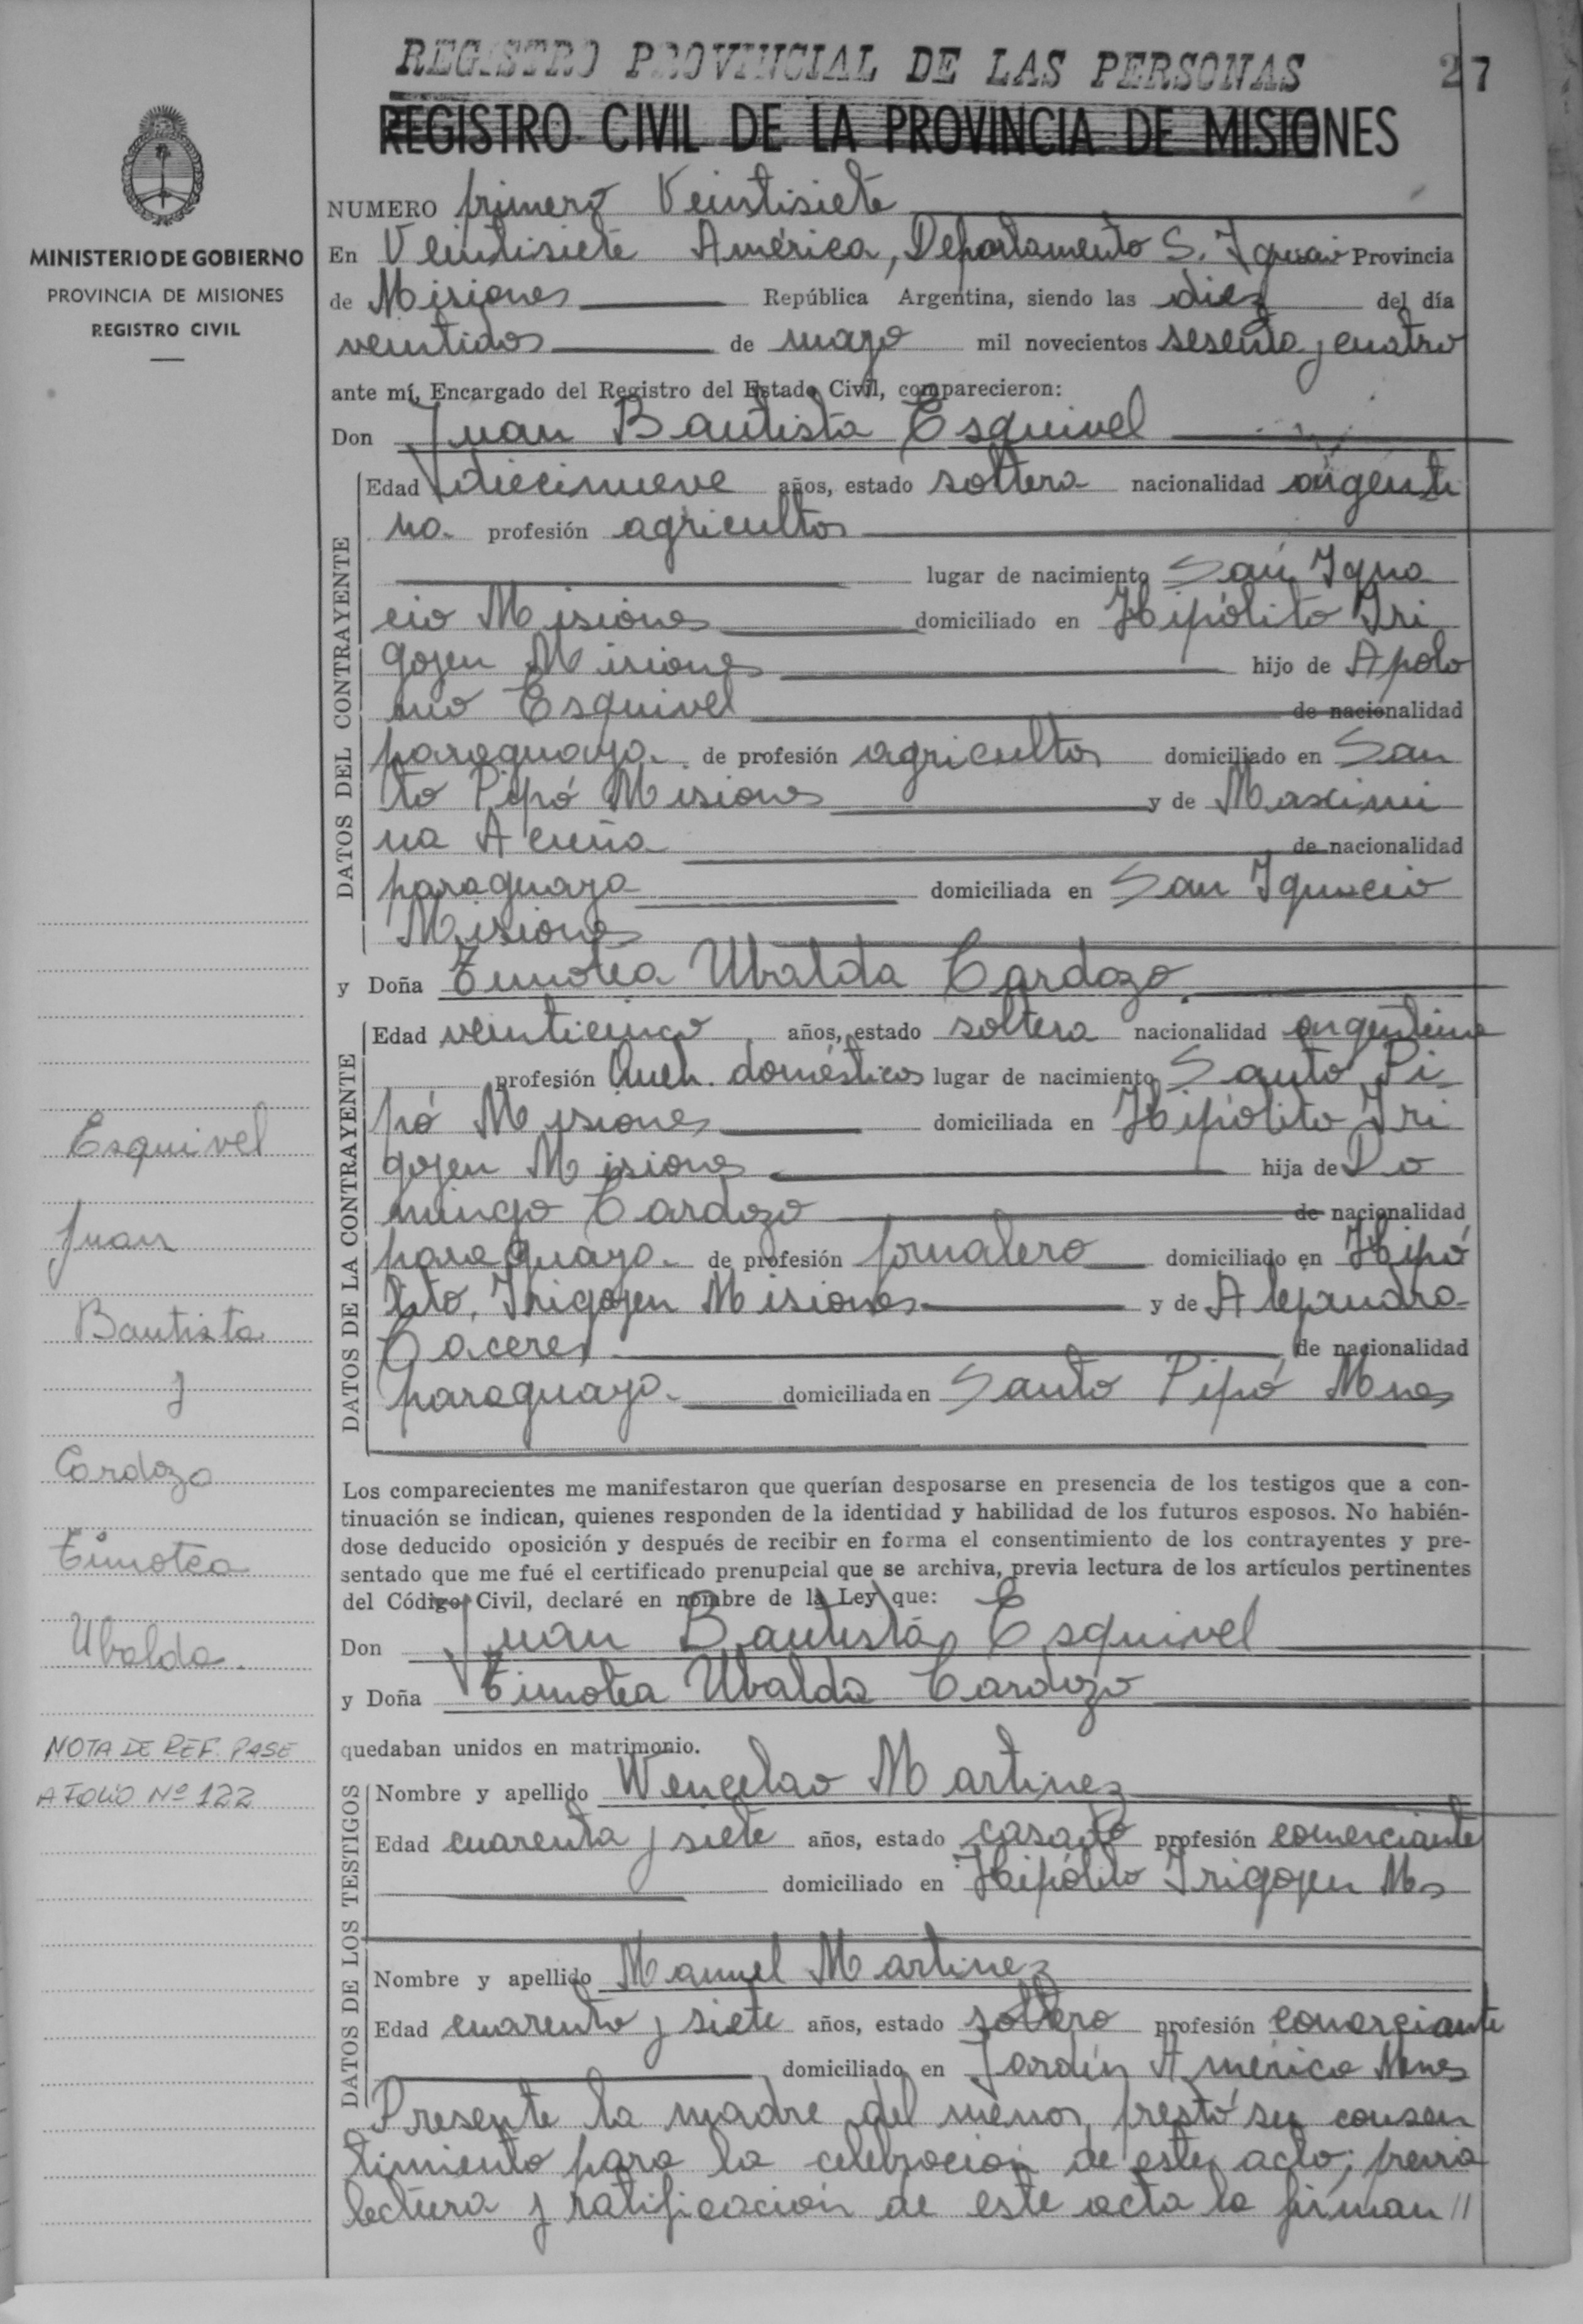 REGISTRO PROVINCIAL DE LAS PERSONAS
27
REGISTRO CIVIL DE LA PROVINCIA DE MISIONES
MINISTERIO DE GOBIERNO
PROVINCIA DE MISIONES
REGISTRO CIVIL
NUMERO primero Veintisiete
En Veintisiete América, Departamento S. Provincia
de Misiones República Argentina, siendo las diez del día
veintidos de mayo mil novecientos sesenta y cuatro
ante mí, Encargado del Registro del Estado Civil, comparecieron:
Don Juan Bautista Esquivel
DATOS DEL CONTRAYENTE
Edad diecinueve años, estado soltero nacionalidad argenti
na profesión agricultor
lugar de nacimiento San Igna
cio Misiones domiciliado en Hipólito Iri
goyen Misiones hijo de Apolo
nio Esquivel de nacionalidad
paraguaya de profesión agricultor domiciliado en San
to Pipó Misiones y de Maximi
na Acuña de nacionalidad
paraguaya domiciliada en San Ignacio
Misiones
y Doña Timotea Ubalda Cardozo
DATOS DE LA CONTRAYENTE
Edad veinticinco años, estado soltera nacionalidad argentina
profesión Queh. domésticos lugar de nacimiento Santo Pi
pó Misiones domiciliada en Hipólito Iri
goyen Misiones hija de Do
mingo Cardozo de nacionalidad
paraguaya de profesión jornalero domiciliado en Hipó
lito Irigoyen Misiones y de Alejandra
Caceres de nacionalidad
paraguaya domiciliada en Santo Pipó Mnes
Los comparecientes me manifestaron que querían desposarse en presencia de los testigos que a con-
tinuación se indican, quienes responden de la identidad y habilidad de los futuros esposos. No habién-
dose deducido oposición y después de recibir en forma el consentimiento de los contrayentes y pre-
sentado que me fué el certificado prenupcial que se archiva, previa lectura de los artículos pertinentes
del Código Civil, declaré en nombre de la Ley que:
Don Juan Bautista Esquivel
y Doña Timotea Ubalda Cardozo
quedaban unidos en matrimonio.
DATOS DE LOS TESTIGOS
Nombre y apellido Wencelao Martinez
Edad cuarenta y siete años, estado casado profesión comerciante
domiciliado en Hipólito Irigoyen Ms
Nombre y apellido Manuel Martinez
Edad cuarenta y siete años, estado soltero profesión comerciante
domiciliado en Jardín América Mnes
Presente la madre del menor prestó su consen
timiento para la celebracion de este acto; previa
lectura y ratificacion de este acta la firman //
Esquivel
Juan
Bautista
y
Cardozo
Timotea
Ubalda.
NOTA DE REF. PASE
A FOLIO Nº 122